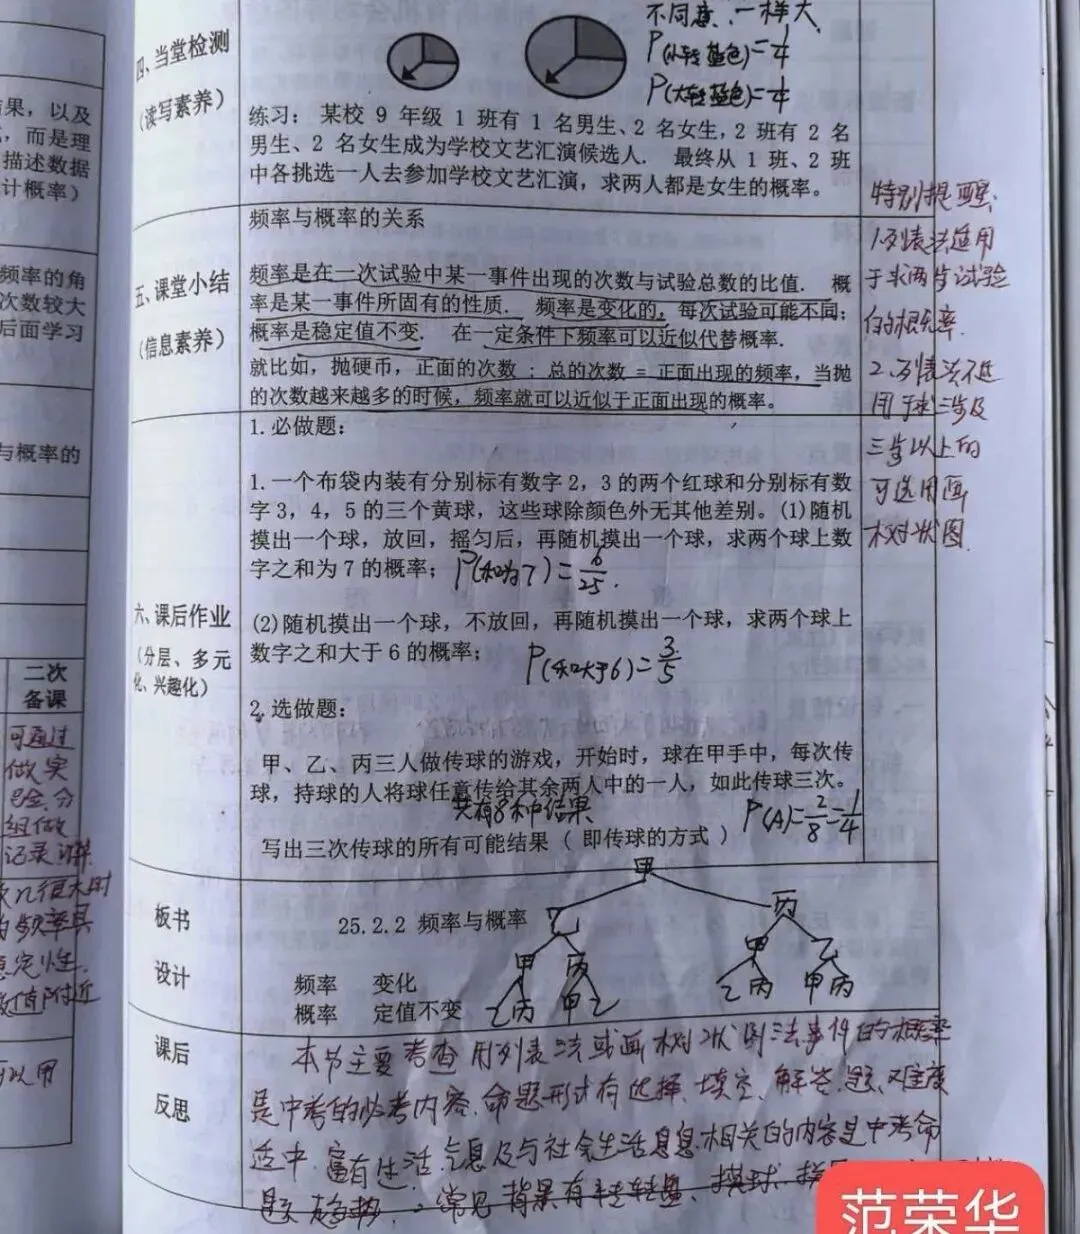 果，以及
，而是理
描述数据
计概率）
频率的角
次数较大
后面学习
与概率的
二次
备课
可通过
做实
验.分
组做
记录
稳定性.
值附近
可以用
四、当堂检测
（读写素养）
不同意、一样大
P(小转蓝色)=1/4
P(大转蓝色)=1/4
练习： 某校 9 年级 1 班有 1 名男生、2 名女生，2 班有 2 名
男生、2 名女生成为学校文艺汇演候选人． 最终从 1 班、2 班
中各挑选一人去参加学校文艺汇演，求两人都是女生的概率。
五、课堂小结
（信息素养）
频率与概率的关系
频率是在一次试验中某一事件出现的次数与试验总数的比值． 概
率是某一事件所固有的性质． 频率是变化的，每次试验可能不同；
概率是稳定值不变． 在一定条件下频率可以近似代替概率．
就比如，抛硬币，正面的次数 : 总的次数 = 正面出现的频率，当抛
的次数越来越多的时候，频率就可以近似于正面出现的概率。
特别提醒:
1.列表法适用
于求两步试验
的概率.
2.列表法不适
用于求三步及
三步以上的
可选用画
树状图.
六、课后作业
（分层、多元
化、兴趣化）
1.必做题：
1.一个布袋内装有分别标有数字 2，3 的两个红球和分别标有数
字 3，4，5 的三个黄球，这些球除颜色外无其他差别。(1)随机
摸出一个球，放回，摇匀后，再随机摸出一个球，求两个球上数
字之和为 7 的概率； P(和为7)=6/25.
(2)随机摸出一个球，不放回，再随机摸出一个球，求两个球上
数字之和大于 6 的概率； P(和大于6)=3/5
2.选做题：
甲、乙、丙三人做传球的游戏，开始时，球在甲手中，每次传
球，持球的人将球任意传给其余两人中的一人，如此传球三次。
共有8种结果 P(A)=2/8=1/4
写出三次传球的所有可能结果 ( 即传球的方式 )
板书
设计
25.2.2 频率与概率
频率 变化
概率 定值不变
甲
乙 丙
甲 丙 甲 乙
乙丙 甲乙 乙丙 甲丙
课后
反思
本节主要考查用列表法或画树状图法事件的概率
是中考的必考内容.命题形式有选择、填空、解答题、难度
适中.富有生活气息及与社会生活息息相关的内容是中考命
题趋势.常见背景有转转盘、摸球、
范荣华